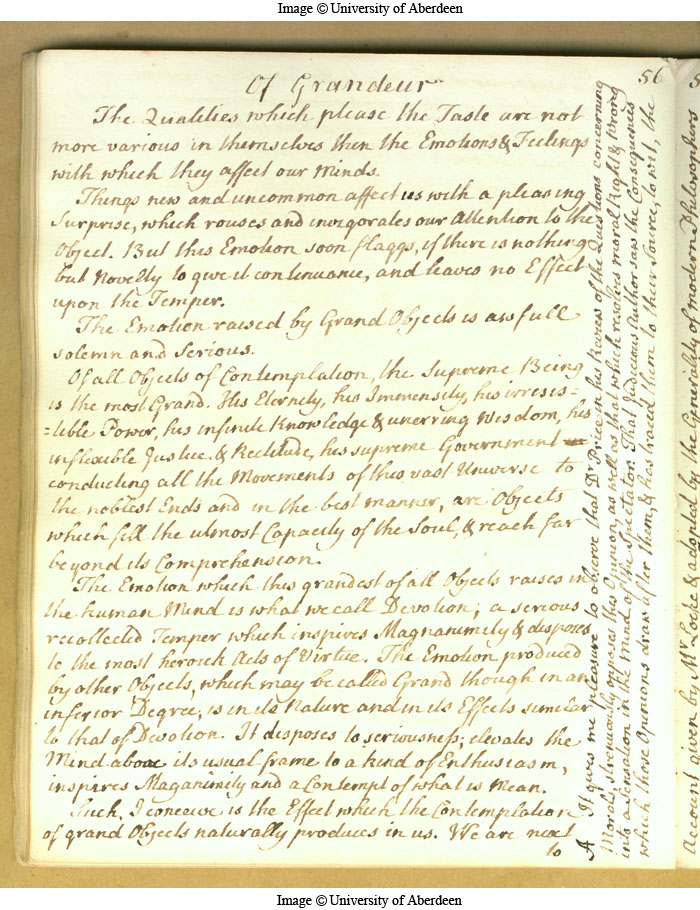 Image © University of Aberdeen
56
Of Grandeur
The Qualities which please the Taste are not
more various in themselves then the Emotions & Feelings
with which they affect our Minds.
Things new and uncommon affect us with a pleasing
Surprise, which rouses and invigorates our Attention to the
Object. But this Emotion soon flaggs, if there is nothing
but Novelty to give it continuance, and leaves no Effect
upon the Temper.
The Emotion raised by Grand Objects is awfull
solemn and Serious.
Of all Objects of Contemplation, the Supreme Being
is the most Grand. His Eternity, his Immensity, his irresis=
=tible Power, his infinite Knowledge & unerring Wisdom, his
inflexible Justice & Rectitude, his supreme Government
conducting all the Movements of this vast Universe to
the noblest Ends and in the best manner, are Objects
which fill the utmost Capacity of the Soul, & reach far
beyond its Comprehension.
The Emotion which this grandest of all Objects raises in
the human Mind is what we call Devotion; a serious
recollected Temper which inspires Magnanimity & disposes
to the most heroick Acts of Virtue. The Emotion produced
by other Objects, which may be called Grand though in an
inferior Degree, is in its Nature and in its Effects similar
to that of Devotion. It disposes to seriousness, elevates the
Mind above its usual frame to a kind of Enthusiasm,
inspires Maganimity and a Contempt of what is Mean.
Such, I conceive is the Effect which the Contemplation
of grand Objects naturally produces in us. We are next
to
A It gives me pleasure to observe that Dr Price in his Review of the Questions concerning
Morals, strenuously opposes this Opinion, as well as that which resolves moral Right & Wrong
into a Sensation in the Mind of the Spectator. That Judicious Author says the Consequences
which those Opinions draw after them, & has traced them to their Source, to wit, the
account given by Mr. Locke & adopted by the Generality of modern Philosophers
Image © University of Aberdeen